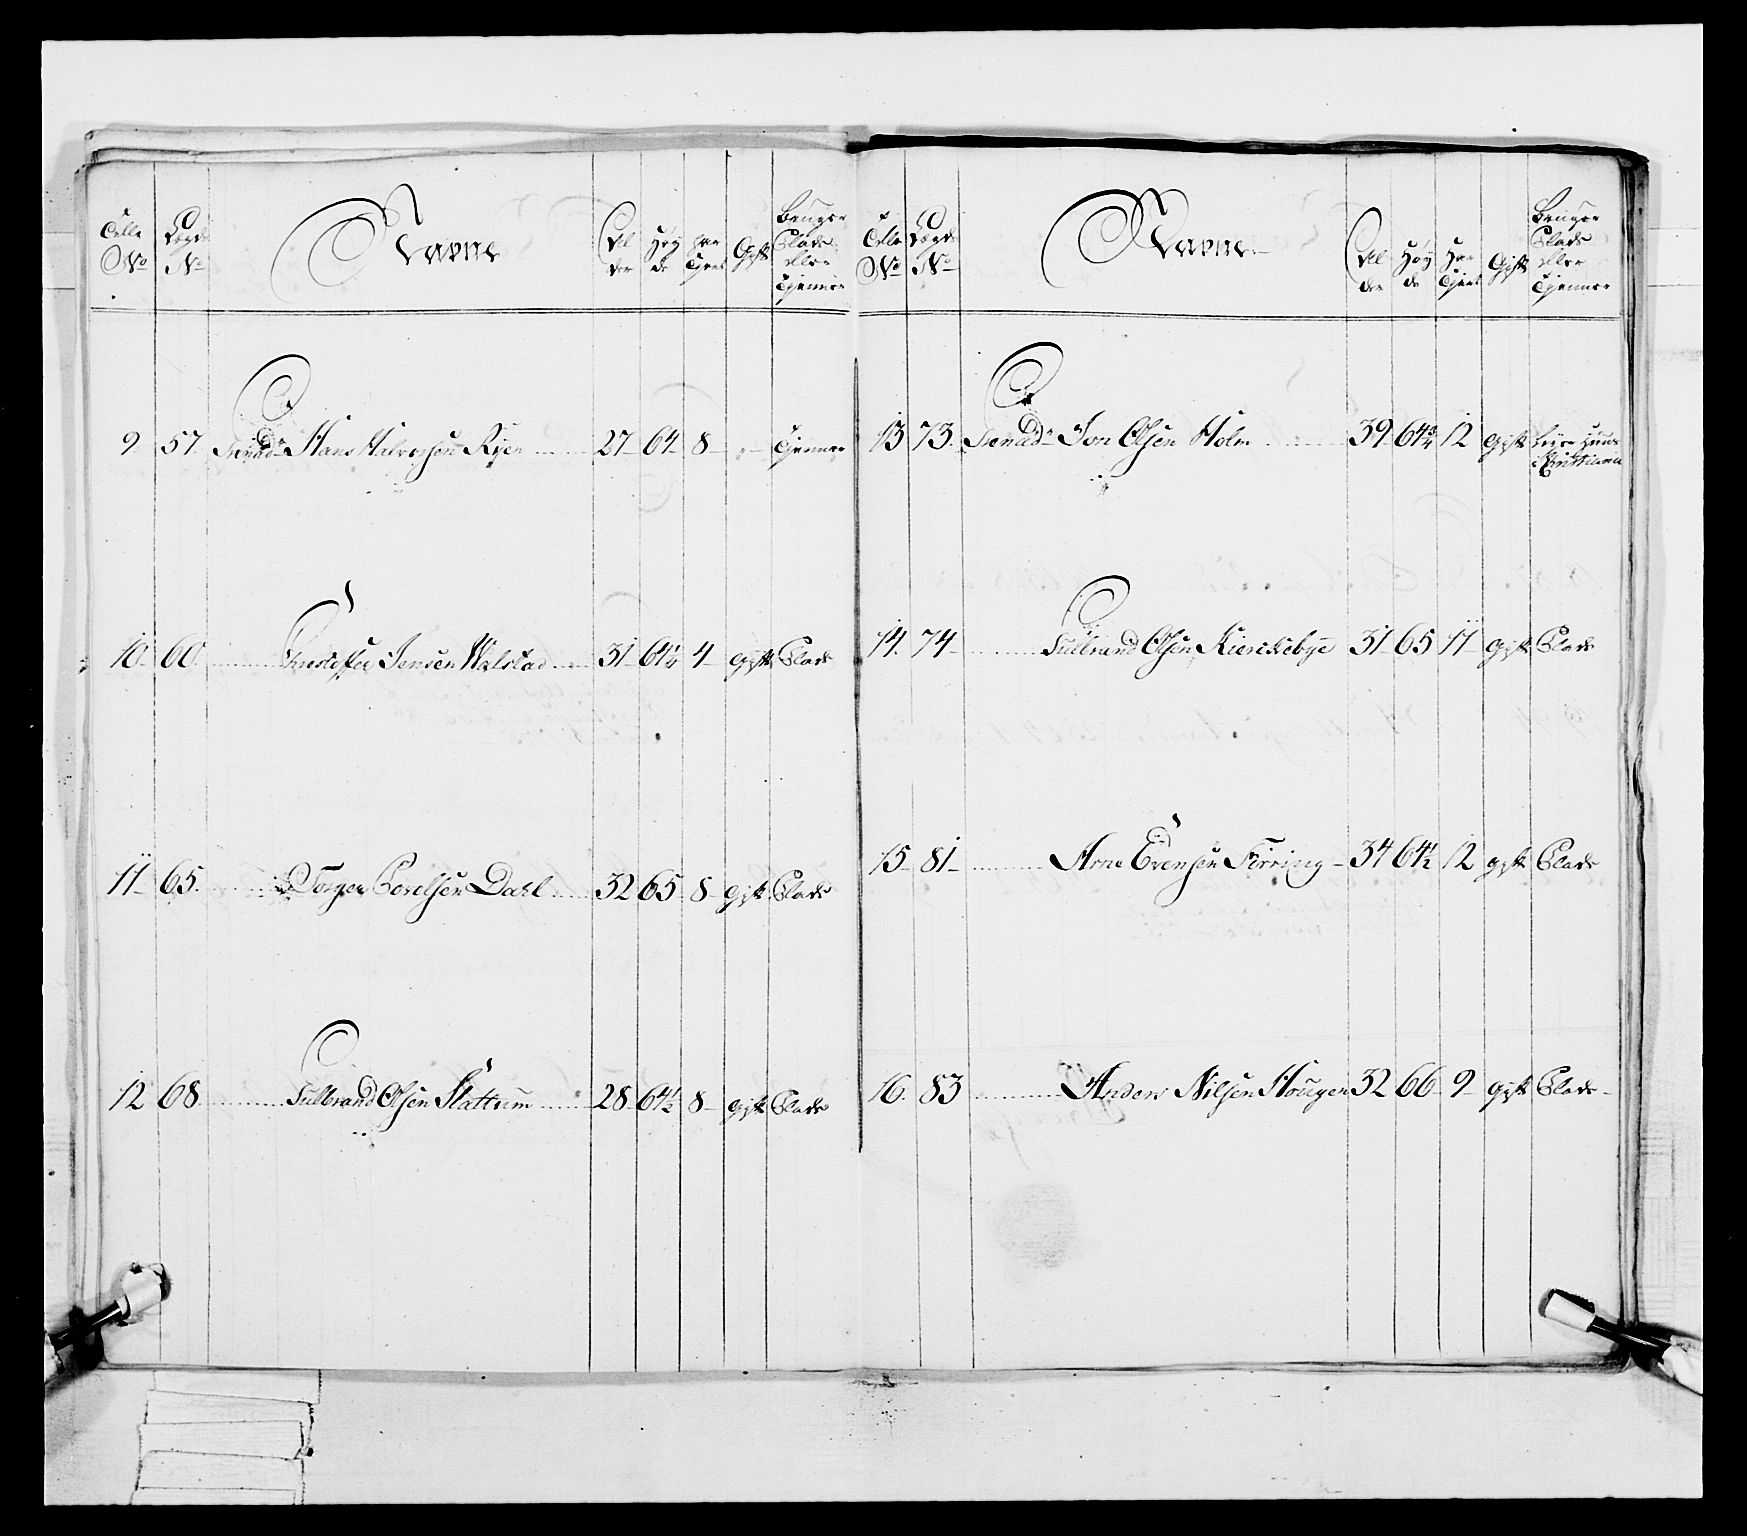 Lægds
No
No
Navne
Al
der
Høy
de
har
Tjent
Gift
Beugse
Plads
eller
Tjenner
9 57 Grenadr Hans Halvorsen Ryen 27 64 8 Tjenner
10 60 Christoffer Jensen Walstad 31 64½ 4 gift Plads
11 65 Torger Povelsen Dahl 32 65 8 gift Plads
12 68 Gulbrand Olsen Slattum 28 64½ 8 gift Plads
No
Lægds
No
Navne
Al
der
Høy
de
Har
Tjent
Gift
Beugse
Plads
eller
Tjenner
13 73 Grenadr Jon Olsen Holm 39 64¾ 12 gift
Christiania
14 74 Gulbrand Olsen Kierkebye 31 65 11 gift Plads
15 81 Arne Evensen 34 64½ 12 gift Plads
16 83 Anders Nilsen Hougen 32 66 9 gift Plads